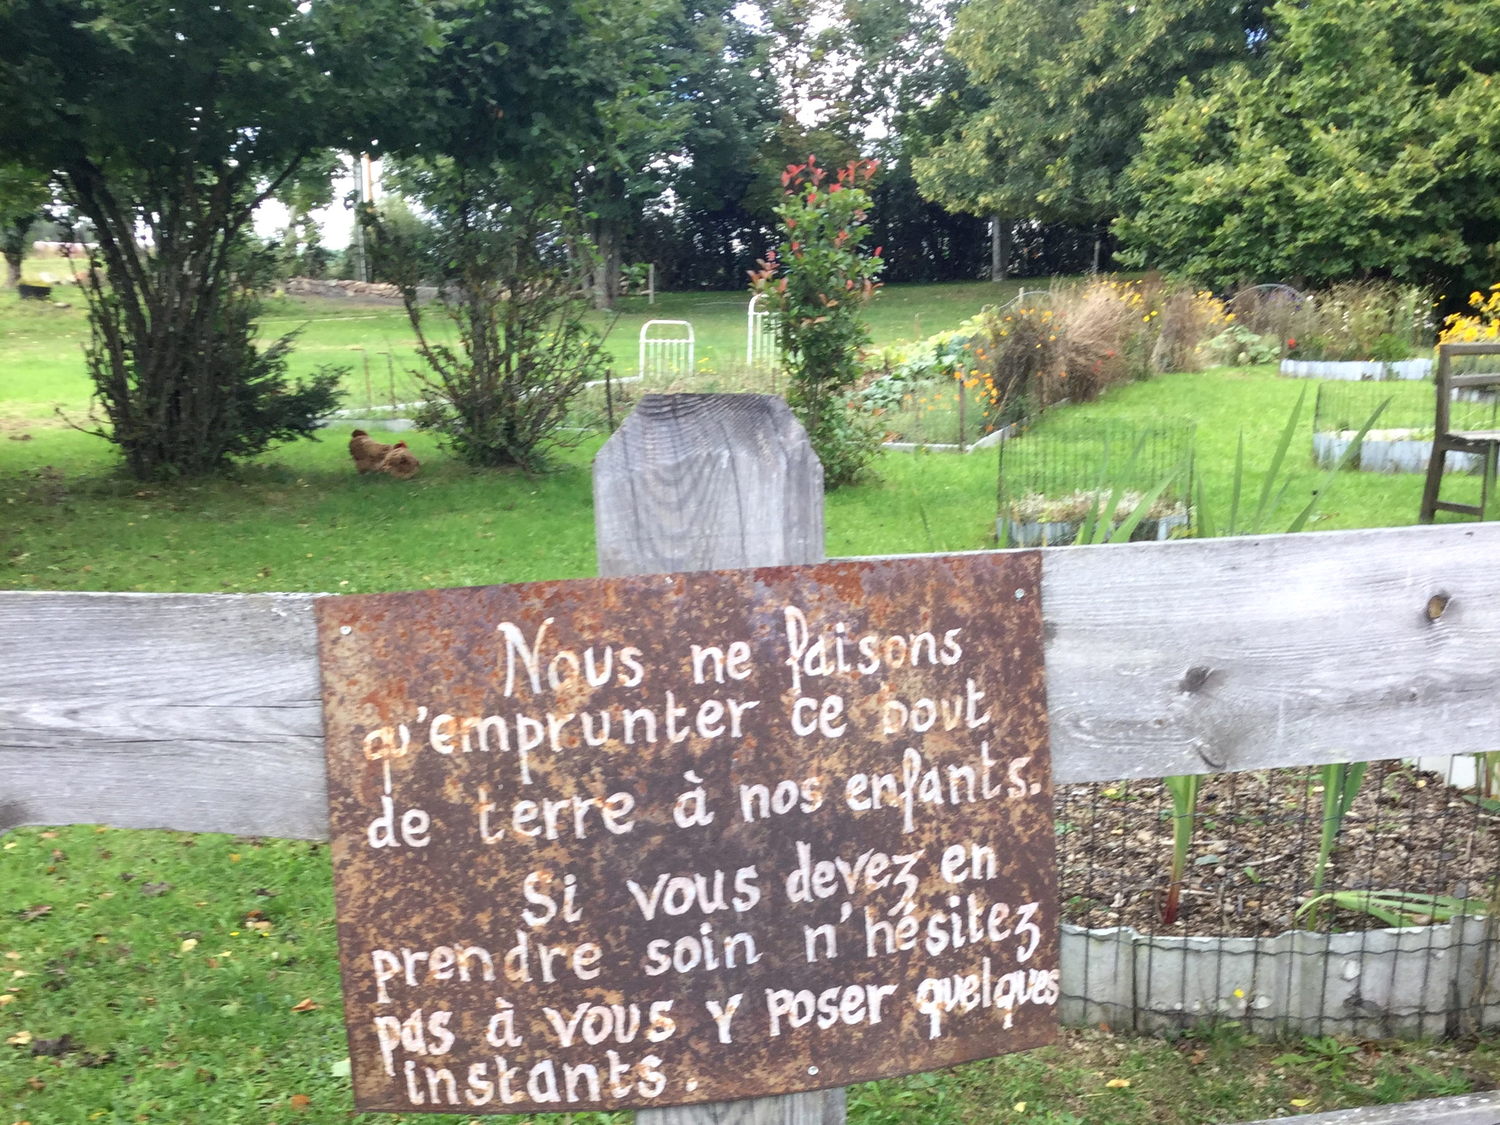 Nous ne faisons
qu'emprunter ce bout
de terre à nos enfants.
Si vous devez en
prendre soin n'hésitez
pas à vous y poser quelques
instants.